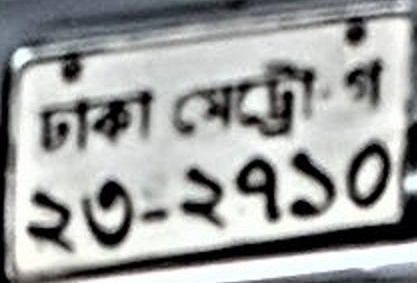 ঢাকা মেট্রো-গ
২৩-২৭১০